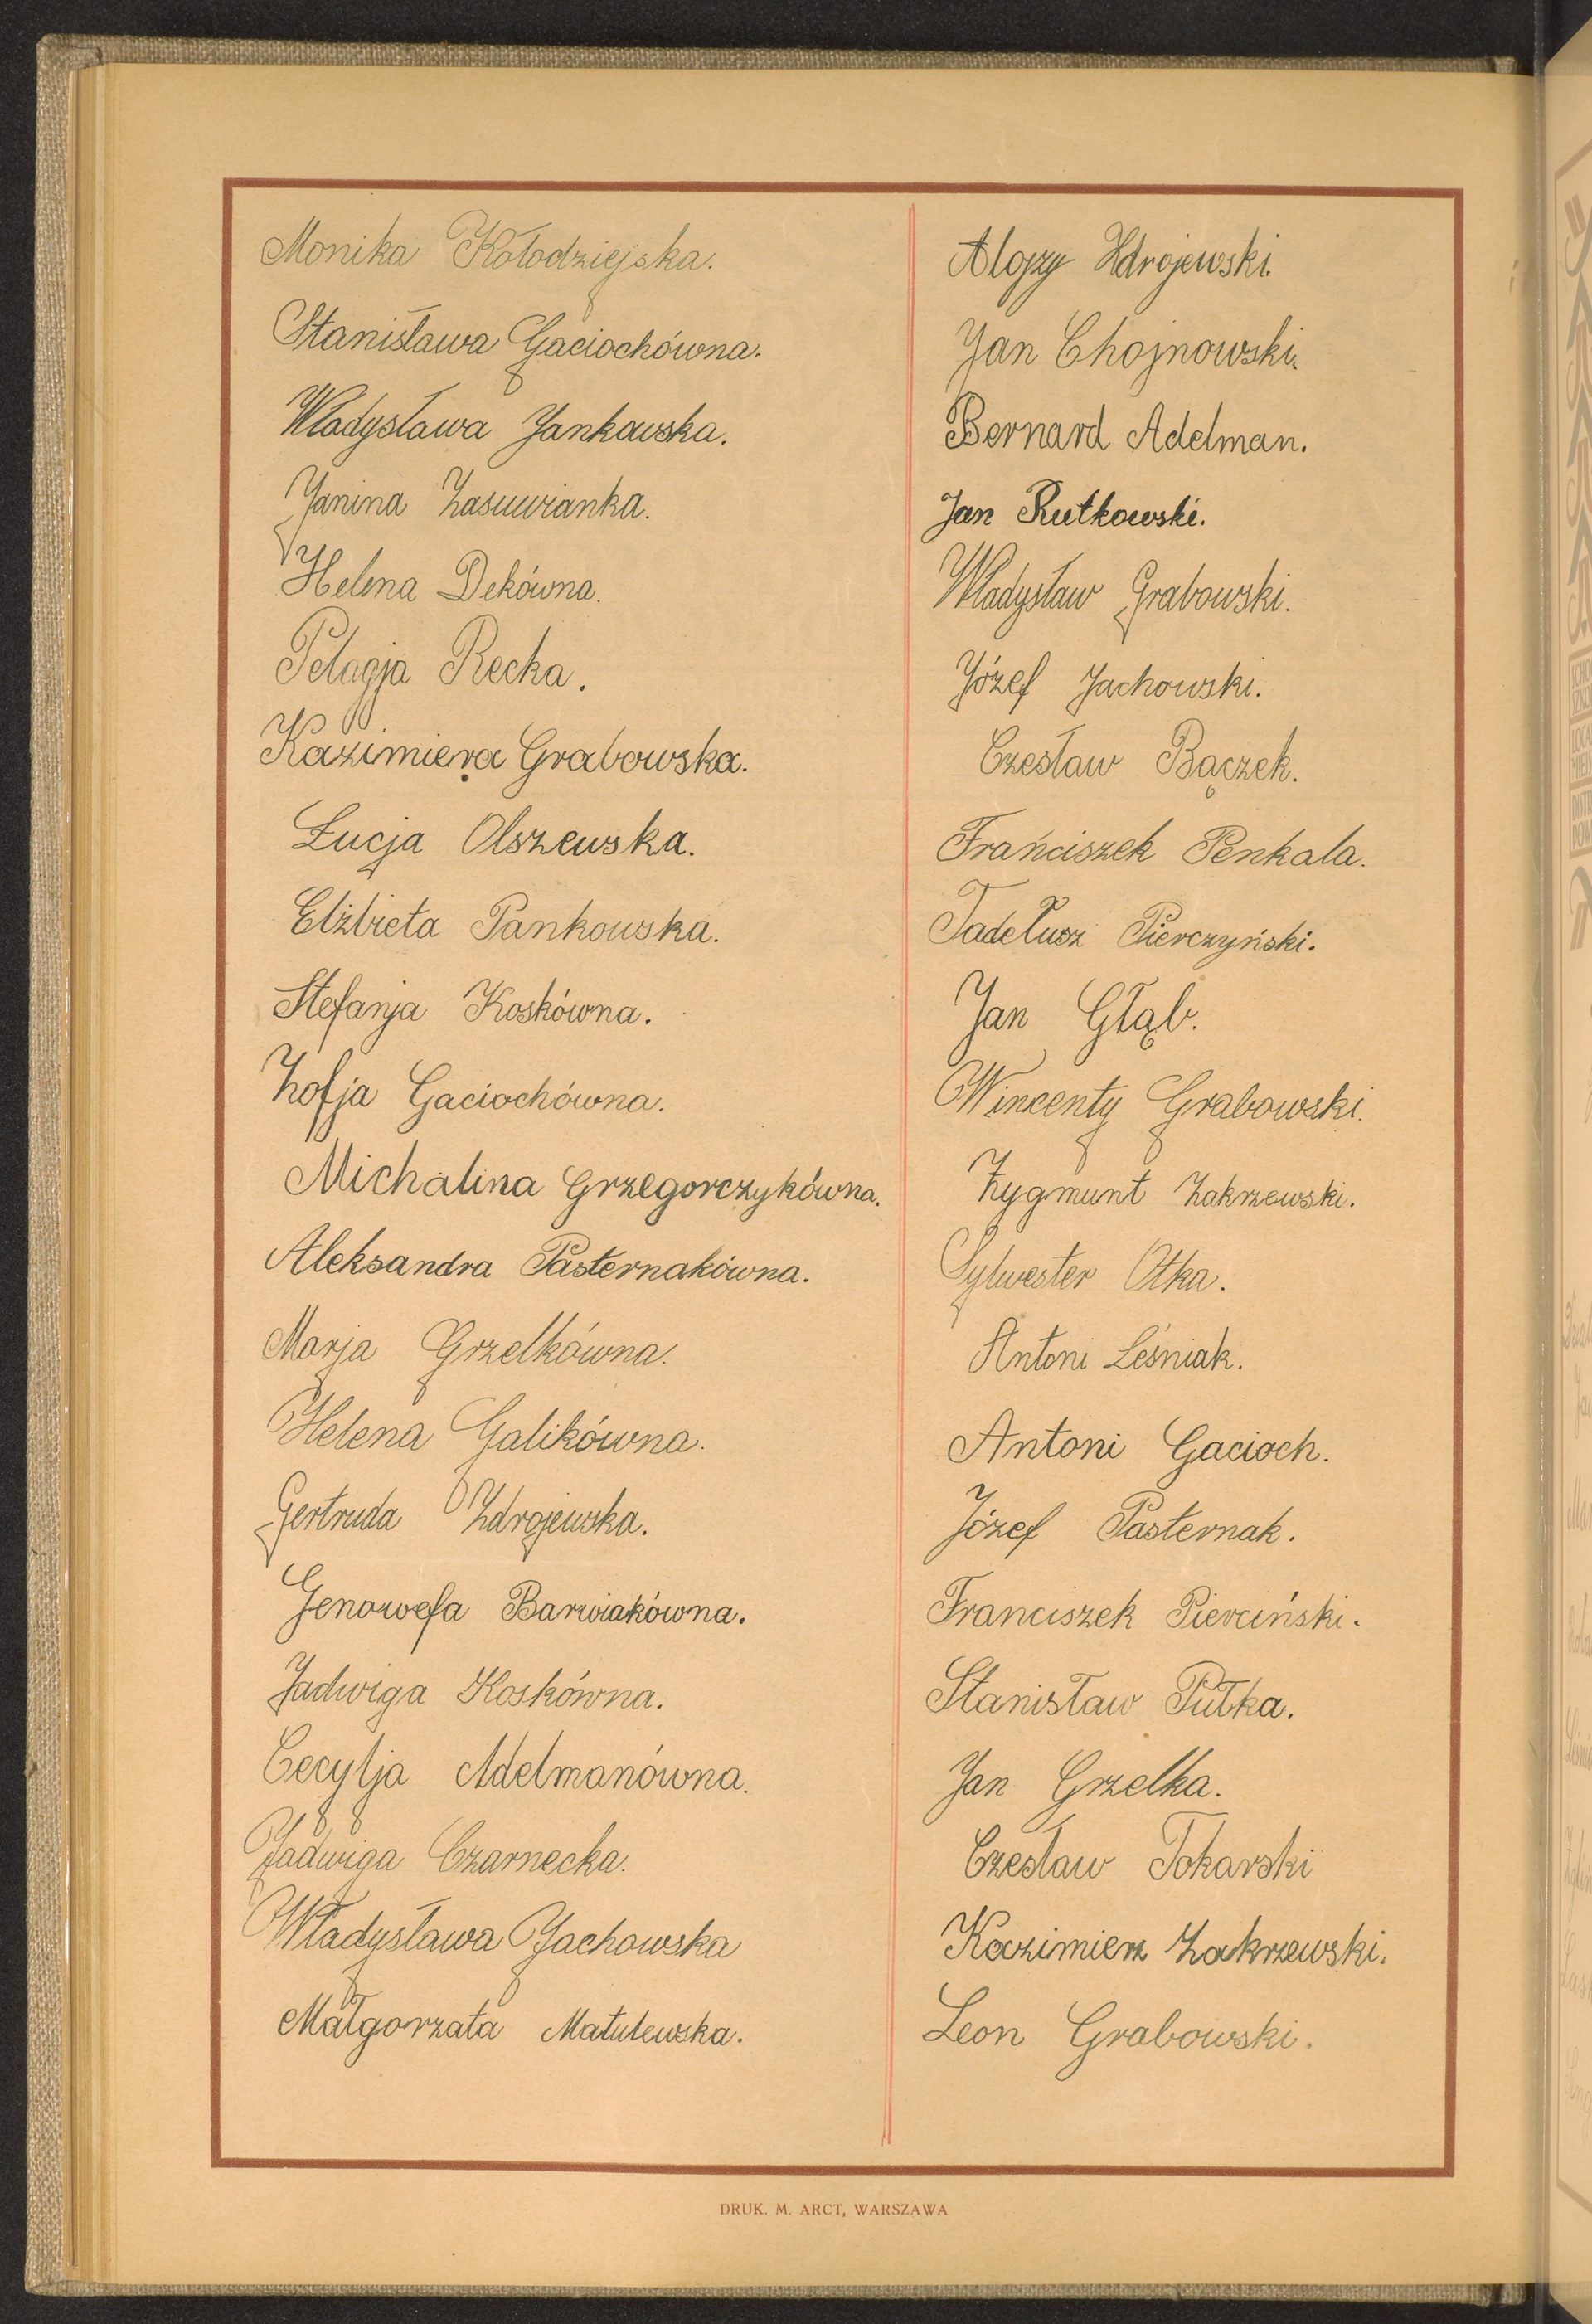 Monika Kołodziejska.
Stanisława Gaciochówna.
Władysława Jankowska.
Janina Zasuwianka.
Helena Dekówna.
Pelagja Recka.
Kazimiera Grabowska.
Łucja Olszewska.
Elżbieta Pankowska.
Stefanja Koskówna.
Zofja Gaciochówna.
Michalina Grzegorczykówna.
Aleksandra Pasternakówna.
Marja Grzelkówna.
Helena Galikówna.
Gertruda Zdrojewska.
Genowefa Barwiakówna.
Jadwiga Koskówna.
Cecylja Adelmanówna.
Jadwiga Czarnecka.
Władysława Jachowska
Małgorzata Matulewska.
Alojzy Zdrojewski.
Jan Chojnowski.
Bernard Adelman.
Jan Rutkowski.
Władysław Grabowski.
Józef Jachowski.
Czesław Bączek.
Franciszek Penkala.
Tadeusz Pierczyński.
Jan Głąb.
Wincenty Grabowski.
Zygmunt Zakrzewski.
Sylwester Otka.
Antoni Leśniak.
Antoni Gacioch.
Józef Pasternak.
Franciszek Pierciński.
Stanisław Pułka.
Jan Grzelka.
Czesław Tokarski
Kazimierz Zakrzewski.
Leon Grabowski.
DRUK. M. ARCT, WARSZAWA